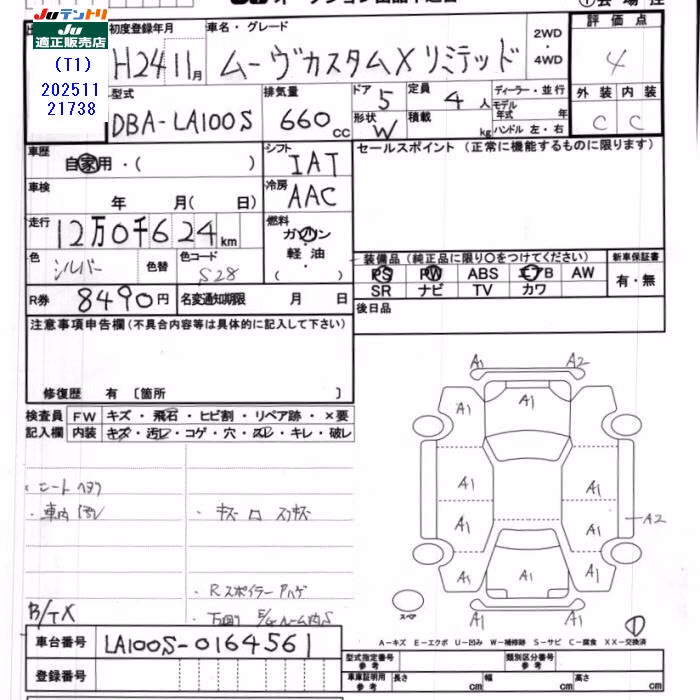 JUテントリ
JU適正販売店
(T1)
202511
21738
初度登録年月
H24 11月
車名・グレード
ムーヴカスタムX リミテッド
2WD
・
4WD
評価点
4
型式
DBA-LA100S
排気量
660cc
ドア 5
定員 4人
形状 W
積載 kg
ディーラー・並行
モデル年式 年
ハンドル 左・右
外装 内装
C C
車歴
自家用・( )
シフト
IAT
セールスポイント (正常に機能するものに限ります)
車検
年 月( 日)
冷房
AAC
走行
12万0千624km
燃料
ガソリン
・
軽油
( )
色
シルバー
色替
色コード
S28
装備品 (純正品に限り○をつけてください)
新車保証書
PS PW ABS エアB AW
SR ナビ TV カワ
有・無
R券 8490円
名変通知期限 月 日
後日品
注意事項申告欄(不具合内容等は具体的に記入して下さい)
修復歴 有 〔箇所 〕
検査員 FW キズ・飛石・ヒビ割・リペア跡・×要
記入欄 内装 キズ・汚レ・コゲ・穴・スレ・キレ・破レ
A1 A2
A1 A1 A1
A1 A1
A1 A1
A2
A1 A1 A1
A1
スペア
A-キズ E-エクボ U-凹み W-補修跡 S-サビ C-腐食 XX-交換済
・車内
・キズ
・Rスポイラー ハゲ
B/TX
車台番号 LA100S-0164561
登録番号
型式指定番号 参考
類別区分番号 参考
車庫証明用 参考
長さ cm
幅 cm
高さ cm